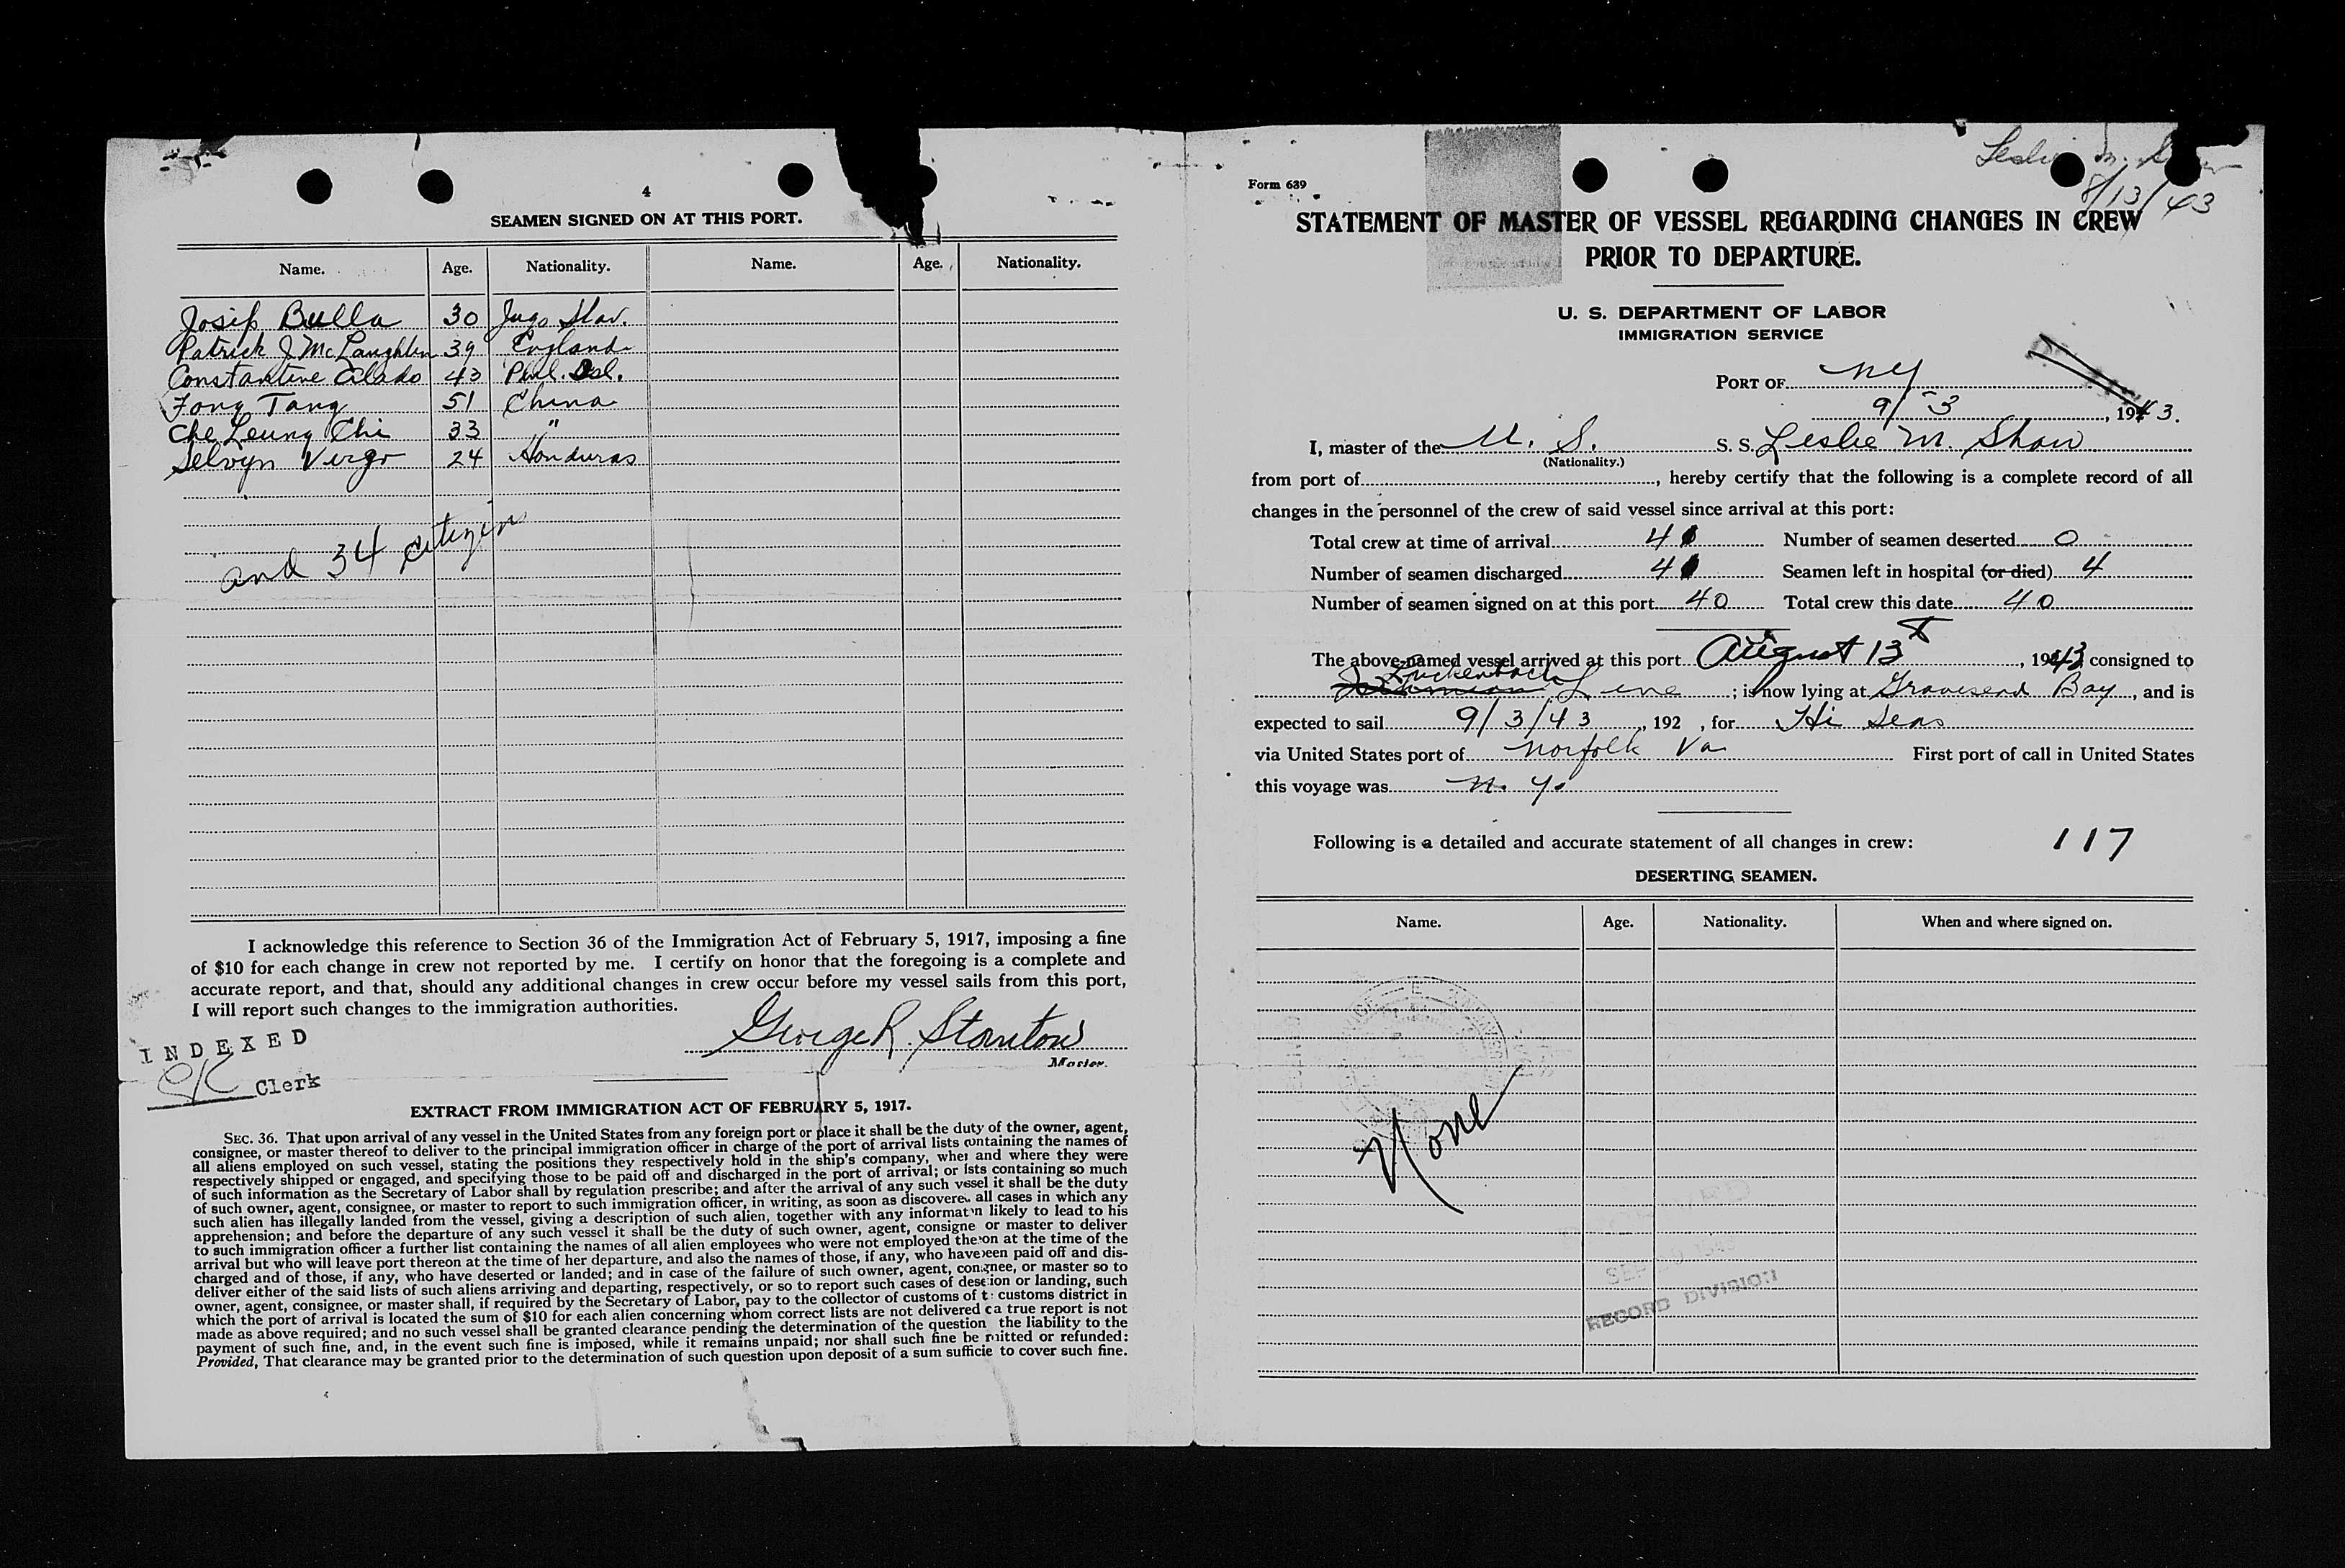 4
SEAMEN SIGNED ON AT THIS PORT.
Name. Age. Nationality. Name. Age. Nationality.
Josip Bulla 30 Jugo Slav.
Patrick J McLaughlin 39 England
Constantine 43 Phil. Isl.
Fong Tang 51 China
Che Leung Chi 33 "
Selvyn Virgo 24 Honduras
and 34 citizen
I acknowledge this reference to Section 36 of the Immigration Act of February 5, 1917, imposing a fine
of $10 for each change in crew not reported by me. I certify on honor that the foregoing is a complete and
accurate report, and that, should any additional changes in crew occur before my vessel sails from this port,
I will report such changes to the immigration authorities.
George R. Stanton
Master.
INDEXED
Clerk
EXTRACT FROM IMMIGRATION ACT OF FEBRUARY 5, 1917.
SEC. 36. That upon arrival of any vessel in the United States from any foreign port or place it shall be the duty of the owner, agent,
consignee, or master thereof to deliver to the principal immigration officer in charge of the port of arrival lists containing the names of
all aliens employed on such vessel, stating the positions they respectively hold in the ship's company, when and where they were
respectively shipped or engaged, and specifying those to be paid off and discharged in the port of arrival; or lists containing so much
of such information as the Secretary of Labor shall by regulation prescribe; and after the arrival of any such vessel it shall be the duty
of such owner, agent, consignee, or master to report to such immigration officer, in writing, as soon as discovered, all cases in which any
such alien has illegally landed from the vessel, giving a description of such alien, together with any information likely to lead to his
apprehension; and before the departure of any such vessel it shall be the duty of such owner, agent, consignee or master to deliver
to such immigration officer a further list containing the names of all alien employees who were not employed thereon at the time of the
arrival but who will leave port thereon at the time of her departure, and also the names of those, if any, who have been paid off and dis-
charged and of those, if any, who have deserted or landed; and in case of the failure of such owner, agent, consignee, or master so to
deliver either of the said lists of such aliens arriving and departing, respectively, or so to report such cases of desertion or landing, such
owner, agent, consignee, or master shall, if required by the Secretary of Labor, pay to the collector of customs of the customs district in
which the port of arrival is located the sum of $10 for each alien concerning whom correct lists are not delivered or a true report is not
made as above required; and no such vessel shall be granted clearance pending the determination of the question the liability to the
payment of such fine, and, in the event such fine is imposed, while it remains unpaid; nor shall such fine be remitted or refunded:
Provided, That clearance may be granted prior to the determination of such question upon deposit of a sum sufficient to cover such fine.
Leslie M. Shaw
8/13/43
Form 689
STATEMENT OF MASTER OF VESSEL REGARDING CHANGES IN CREW
PRIOR TO DEPARTURE.
U. S. DEPARTMENT OF LABOR
IMMIGRATION SERVICE
PORT OF NY
9/3, 1943.
I, master of the U. S. S. S. Leslie M. Shaw
(Nationality.)
from port of, hereby certify that the following is a complete record of all
changes in the personnel of the crew of said vessel since arrival at this port:
Total crew at time of arrival 4 Number of seamen deserted 0
Number of seamen discharged 4 Seamen left in hospital (or died) 4
Number of seamen signed on at this port 40 Total crew this date 40
The above-named vessel arrived at this port August 13, 1943 consigned to
Luckenbach Line; is now lying at Gravesend Bay, and is
expected to sail 9/3/43, 192 , for Hi Seas
via United States port of Norfolk Va First port of call in United States
this voyage was N. Y.
Following is a detailed and accurate statement of all changes in crew: 117
DESERTING SEAMEN.
Name. Age. Nationality. When and where signed on.
None
RECORD DIVISION